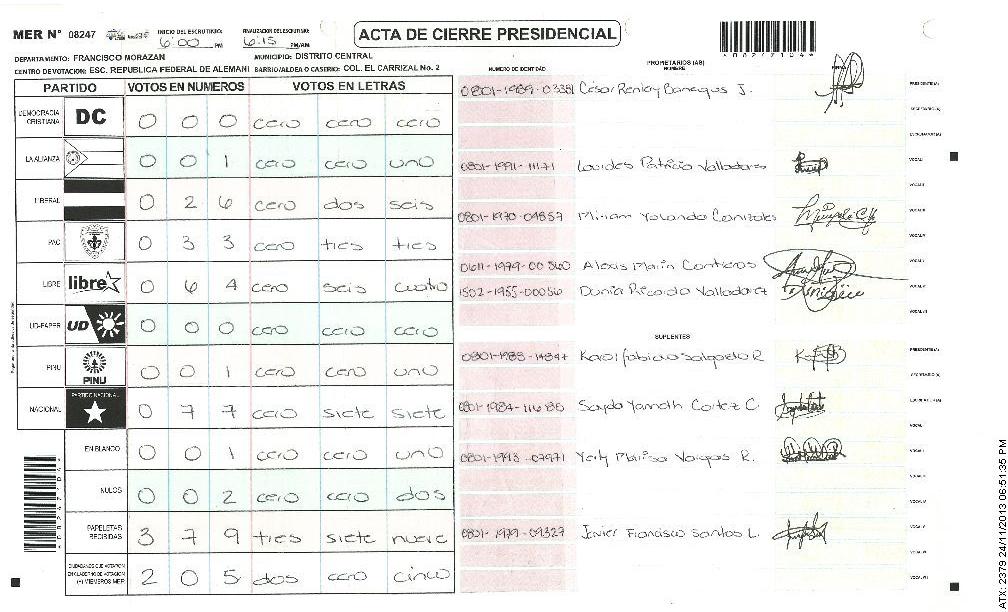 MER Nº 08247
INICIO DEL ESCRUTINIO: 6:00 PM
FINALIZACION DEL ESCRUTINIO: 6:15 PM/AM
ACTA DE CIERRE PRESIDENCIAL
DEPARTAMENTO: FRANCISCO MORAZAN MUNICIPIO: DISTRITO CENTRAL
CENTRO DE VOTACION: ESC. REPUBLICA FEDERAL DE ALEMANI BARRIO/ALDEA O CASERIO: COL. EL CARRIZAL No. 2
PARTIDO VOTOS EN NUMEROS VOTOS EN LETRAS
DEMOCRACIA CRISTIANA DC 0 0 0 cero cero cero
LA ALIANZA 0 0 1 cero cero uno
LIBERAL 0 2 6 cero dos seis
PAC 0 3 3 cero tres tres
LIBRE libre 0 6 4 cero seis cuatro
UD-FAPER UD 0 0 0 cero cero cero
PINU PINU 0 0 1 cero cero uno
NACIONAL PARTIDO NACIONAL 0 7 7 cero siete siete
EN BLANCO 0 0 1 cero cero uno
NULOS 0 0 2 cero cero dos
PAPELETAS RECIBIDAS 3 7 9 tres siete nueve
CIUDADANOS QUE VOTARON EN CUADERNO DE VOTACION (+) MIEMBROS MER 2 0 5 dos cero cinco
NUMERO DE IDENTIDAD
PROPIETARIOS (AS)
NOMBRE
FIRMA
0801-1989-03381 Cesar Banegas J. PRESIDENTE (A)
SECRETARIO (A)
ESCRUTADOR (A)
0801-1991-11171 Lourdes Patricia Valladares VOCAL I
VOCAL II
0801-1970-04857 Miriam Yolanda Canizales VOCAL III
VOCAL IV
0611-1979-00560 Alexis Marin Contreras VOCAL V
1502-1955-00056 Dunia Ricardo Valladarez VOCAL VI
VOCAL VII
SUPLENTES
0801-1985-14847 Karol Fabiola Salgado R. PRESIDENTE (A)
SECRETARIO (A)
0801-1984-11685 Sayda Yameth Cortez C. ESCRUTADOR (A)
VOCAL I
0801-1993-07971 Yerly Marisa Vargas R. VOCAL II
VOCAL III
VOCAL IV
0801-1979-09327 Javier Francisco Santos L. VOCAL V
VOCAL VI
VOCAL VII
ATX: 2379 24/11/2013 06:51:35 PM